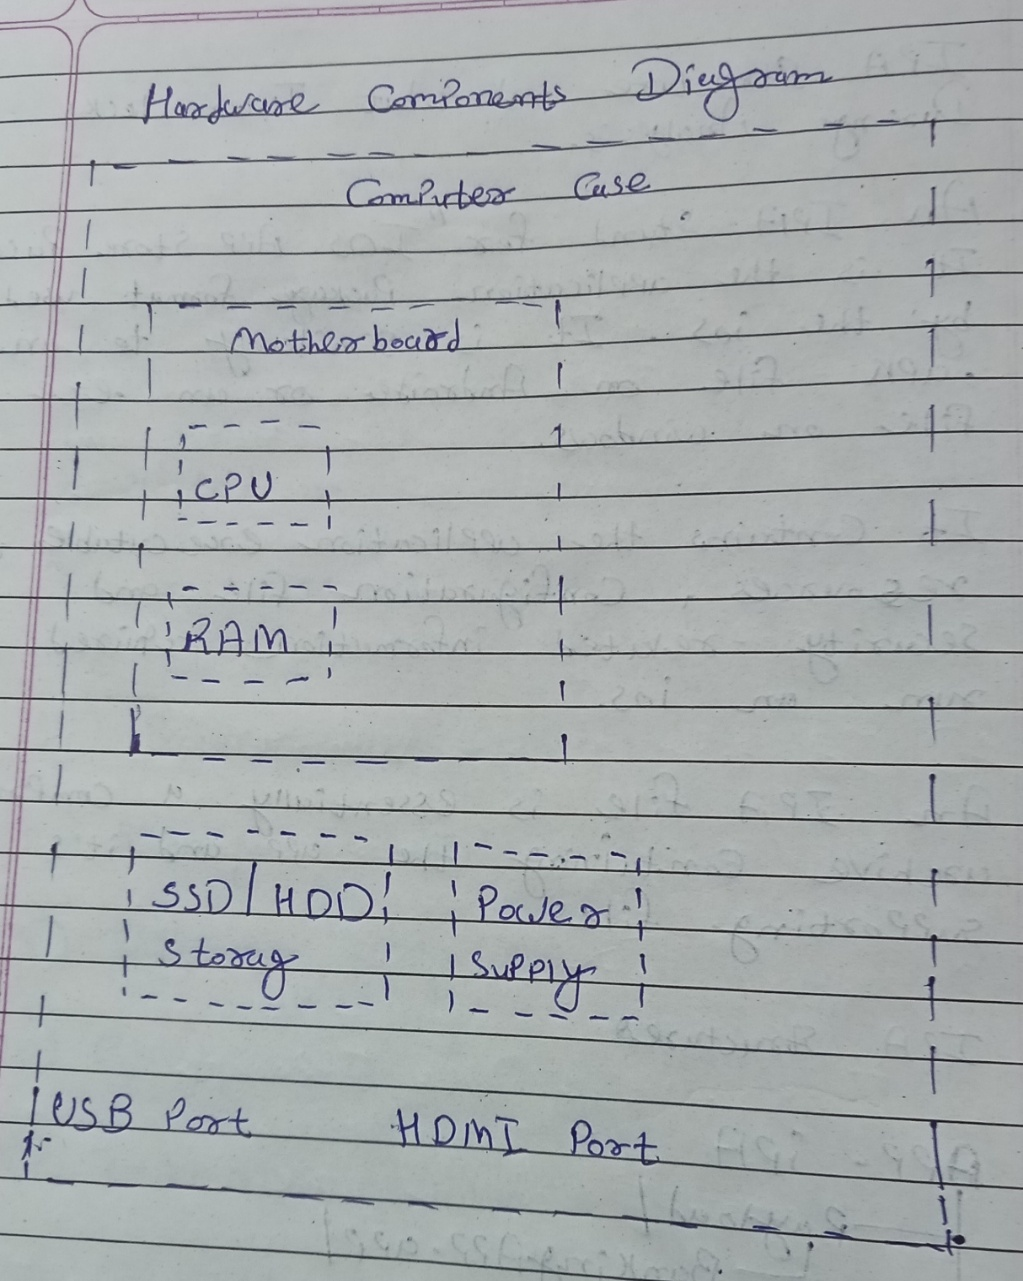 Hardware Components Diagram
Computer Case
Motherboard
CPU
RAM
SSD/HDD
Storag
Power
Supply
USB Port HDMI Port